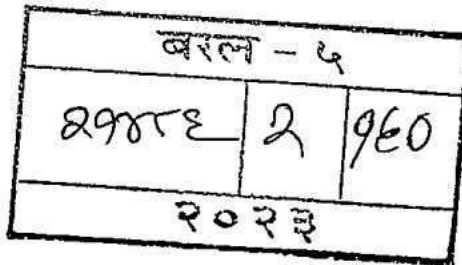 बरल - ५
२१४८६ २ १९०
२०२३